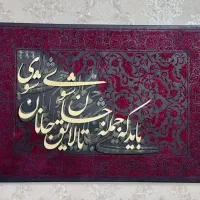 باید که جمله جان شوی
تا لایق جانان شوی